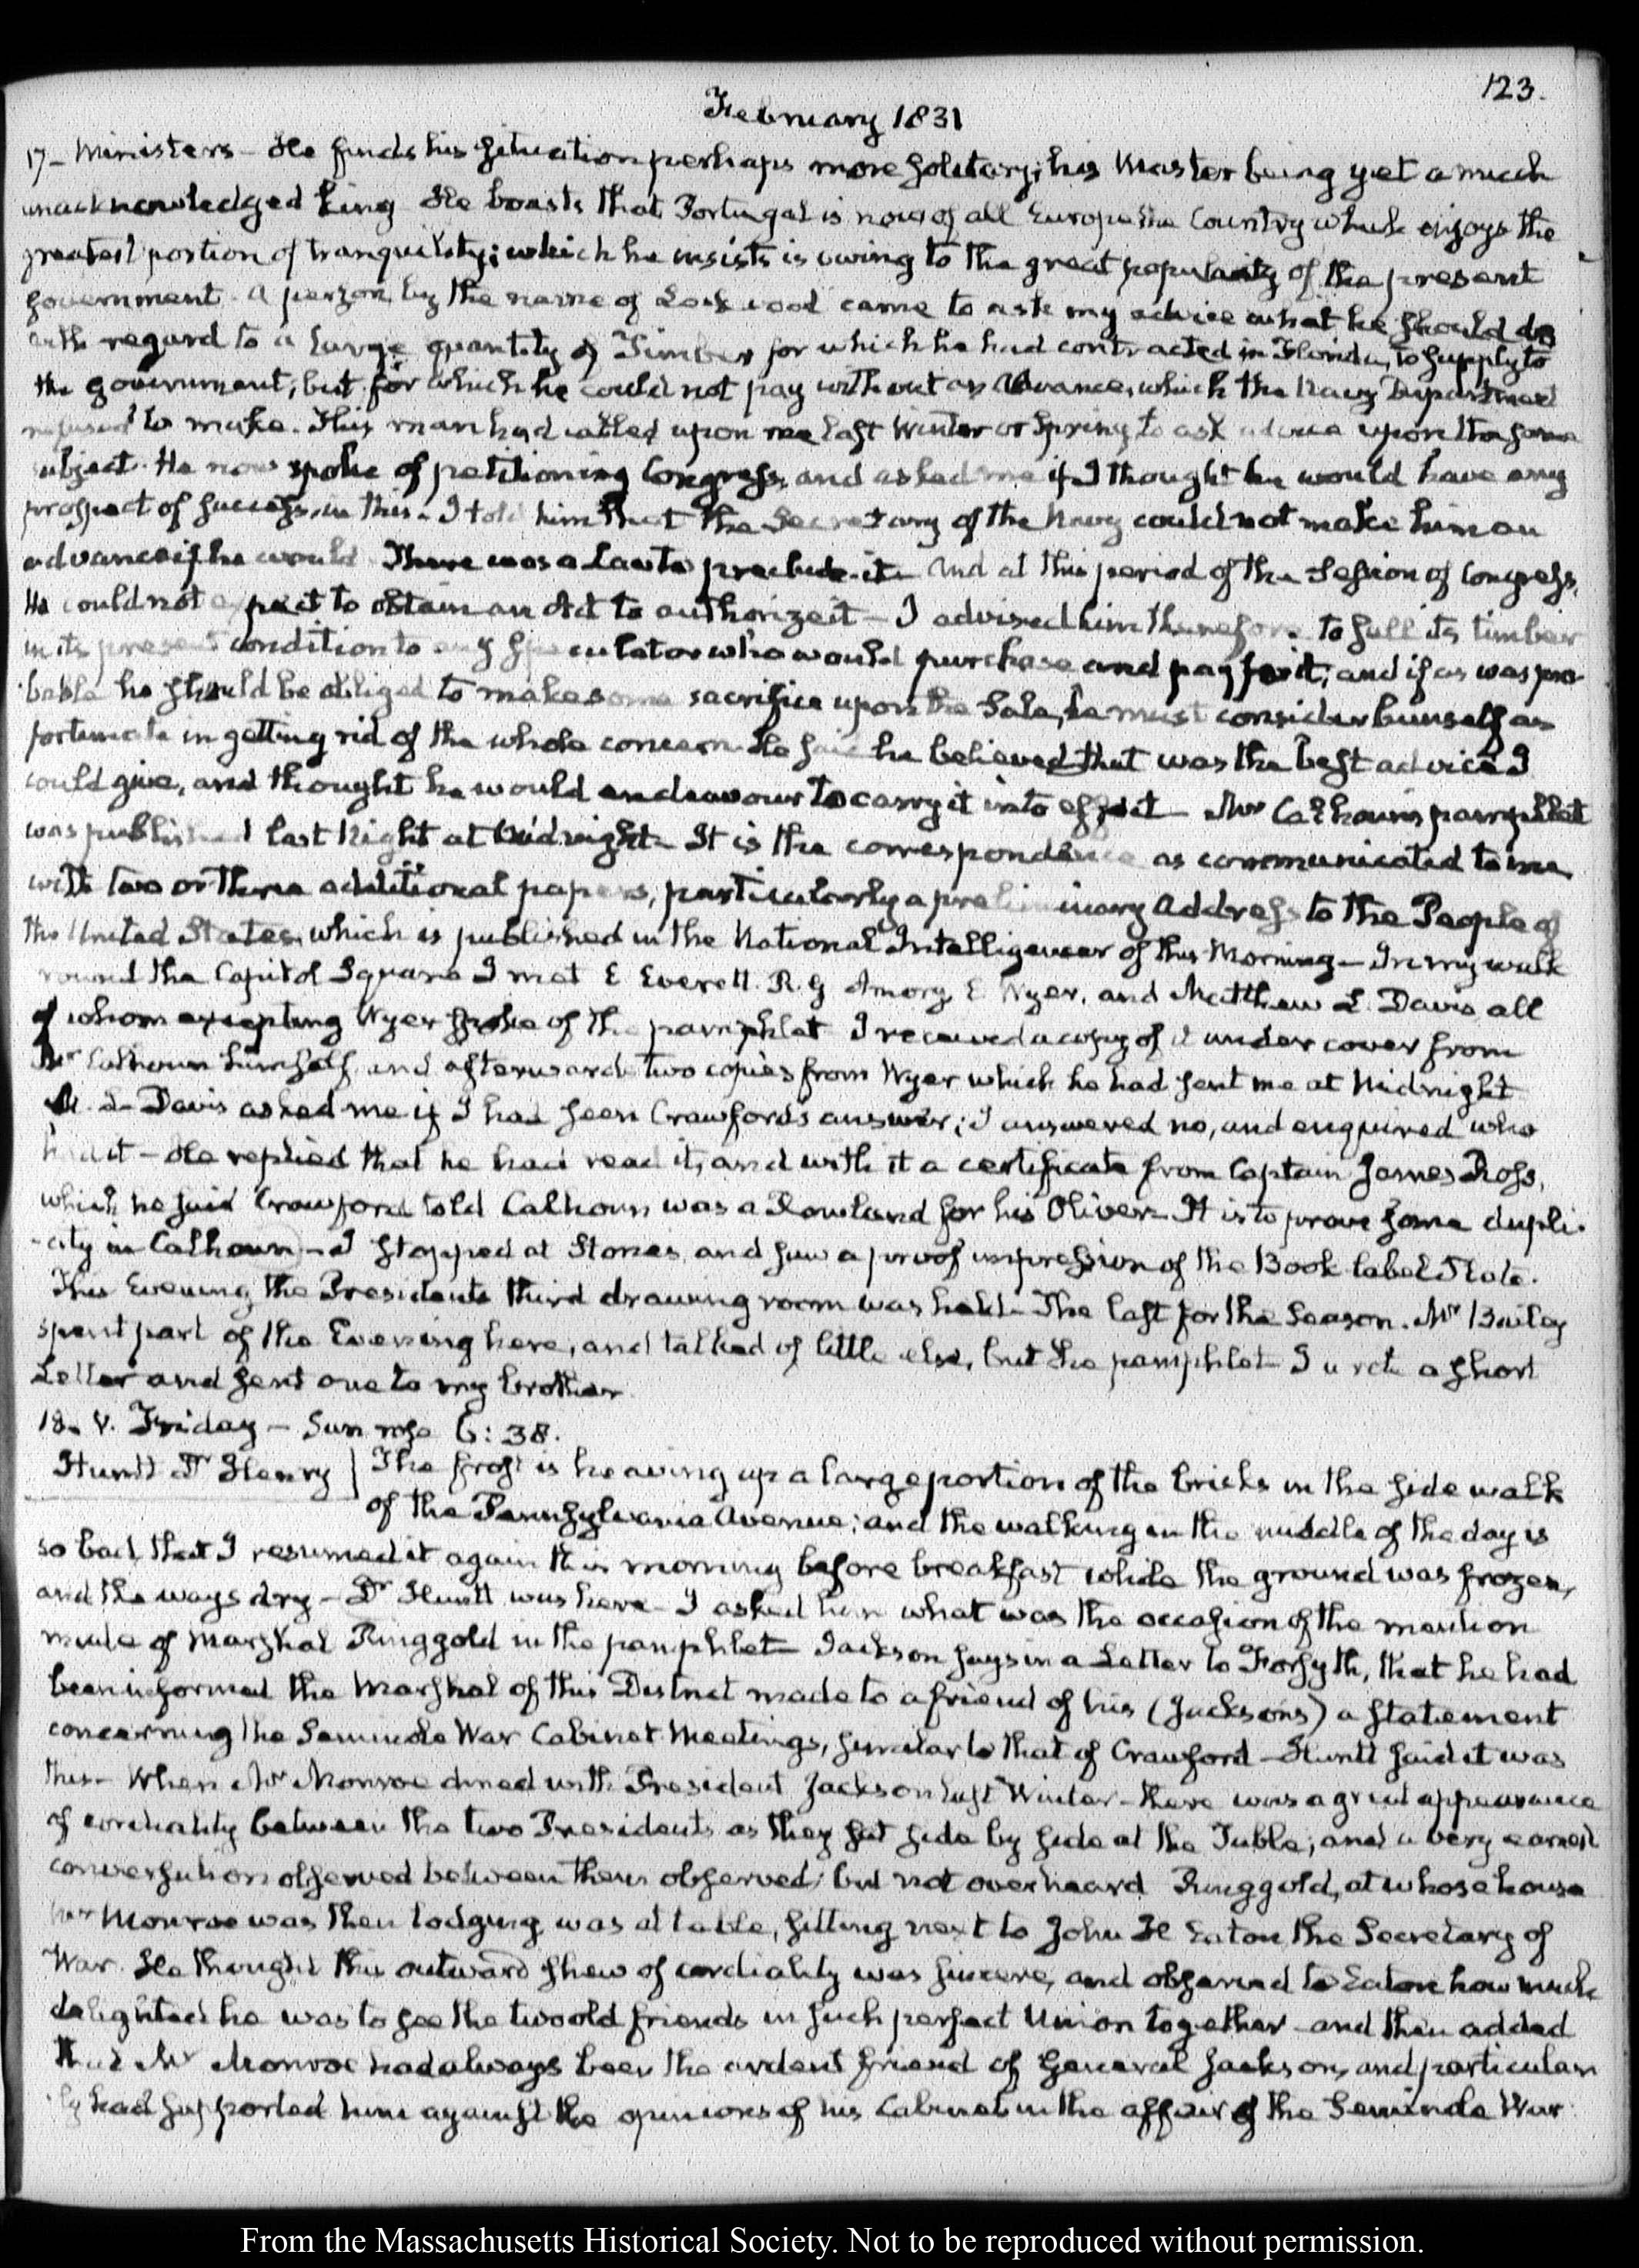 123.
February 1831
17- Ministers - He finds his situation perhaps more solitary; his Master being yet a much
unacknowledged King He boasts that Portugal is now of all Europe the Country which enjoys the
greatest portion of tranquility; which he insists is owing to the great popularity of the present
government. A person, by the name of Lockwood came to ask my advice what he should do
with regard to a large quantity of Timber for which he had contracted in Florida, to supply to
the government; but for which he could not pay without an Advance, which the Navy Department
refused to make. This man had called upon me last Winter or Spring to ask advice upon the same
subject. He now spoke of petitioning Congress, and asked me if I thought he would have any
prospect of success in this. I told him that the Secretary of the Navy could not make him an
advance if he would There was a Law to preclude it - And at this period of the Session of Congress,
He could not expect to obtain an Act to authorize it - I advised him therefore to sell its timber
in its present condition to any speculator who would purchase and pay for it; and if as was pro-
-bable he should be obliged to make some sacrifice upon the Sale, he must consider himself as
fortunate in getting rid of the whole concern. He said he believed that was the best advice I
could give, and thought he would endeavour to carry it into effect - Mr Calhoun's pamphlet
was published last Night at Midnight - It is the correspondence as communicated to me
with two or three additional papers, particularly a preliminary Address to the People of
the United States, which is published in the National Intelligencer of this Morning - In my walk
round the Capitol Square I met E Everett. R. G Amory, E Wyer, and Matthew L. Davis, all
of whom excepting Wyer spoke of the pamphlet I received a copy of it under cover from
Mr Calhoun himself, and afterwards two copies from Wyer which he had sent me at Midnight
M. L. Davis asked me if I had seen Crawford's answer; I answered no, and enquired who
had it - He replied that he had read it, and with it a certificate from Captain James Ross,
which he said Crawford told Calhoun was a Rowland for his Oliver. It is to prove some dupli-
-city in Calhoun - I stopped at Stones, and saw a proof impression of the Book label Plate.
This Evening the Presidents third drawing room was held - The last for the Season. Mr Bailey
spent part of the Evening here, and talked of little else, but the pamphlet - I wrote a short
Letter and sent one to my brother
18. V. Friday - Sun rose 6:38.
Huntt Dr Henry | The frost is heaving up a large portion of the bricks in the side walk
of the Pennsylvania Avenue; and the walking in the middle of the day is
so bad, that I resumed it again this morning before breakfast while the ground was frozen,
and the ways dry - Dr Huntt was here - I asked him what was the occasion of the mention
made of Marshal Ringgold in the pamphlet - Jackson says in a Letter to Forsyth, that he had
been informed the Marshal of this District made to a friend of his (Jacksons) a statement
concerning the Seminole War Cabinet Meetings, similar to that of Crawford - Huntt said it was
this - When Mr Monroe dined with President Jackson last Winter - there was a great appearance
of cordiality between the two Presidents as they sat side by side at the Table; and a very earnest
conversation observed between them observed; but not overheard. Ringgold, at whose house
Mr Monroe was then lodging was at table, sitting next to John H Eaton the Secretary of
War. He thought this outward shew of cordiality was sincere, and observed to Eaton how much
delighted he was to see the two old friends in such perfect Union together - and then added
that Mr Monroe had always been the ardent friend of General Jackson, and particular
ly had supported him against the opinions of his Cabinet in the affair of the Seminole War
From the Massachusetts Historical Society. Not to be reproduced without permission.